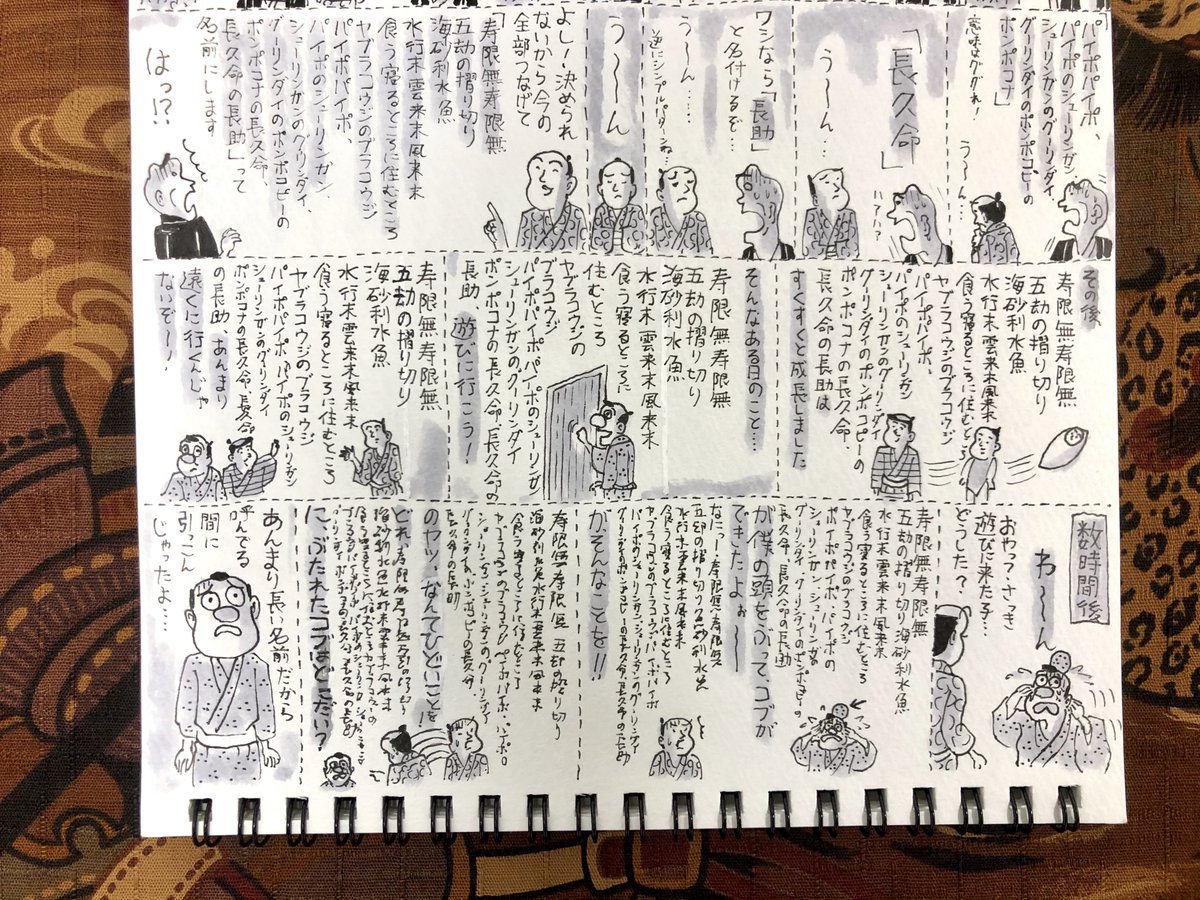 パイポパイポ、
パイポのシューリンガン
シューリンガンのグーリンダイ、
グーリンダイのポンポコピーの
ポンポコナ」
意味はググれ!
う~ん…
「長久命」
ハァハァ?
う~ん…
ワシなら「長助」
と名付けるぞ…
う~ん……
逆にシンプルパターンね…
う~ん
よしい決められ
ないから今の
全部つなげて
「寿限無寿限無
五劫の摺り切り
海砂利水魚
水行末雲来末風来末
食う寝るところに住むところ
ヤブラコウジのブラコウジ
パイポパイポ、
パイポのシューリンガン、
シューリンガンのグーリンダイ、
グーリンダイのポンポコピーの
ポンポコナの長久命、
長久命の長助」って
名前にします
はっ!?
その後
寿限無寿限無
五劫の摺り切り
海砂利水魚
水行末雲来末風来末
食う寝るところに住むところ
ヤブラコウジのブラコウジ
パイポパイポ、
パイポのシューリンガン
シューリンガンのグーリンダイ
グーリンダイのポンポコピーの
ポンポコナの長久命、
長久命の長助は
すくすくと成長しました
そんなある日のこと…
寿限無寿限無
五劫の摺り切り
海砂利水魚
水行末雲来末風来末
食う寝るところに、
住むところ
ヤブラコウジの
ブラコウジ
パイポパイポパイポのシューリンガ
シューリンガンのグーリンダイ
ポンポコナの長久命、長久命の
長助 遊びに行こう!
寿限無寿限無
五劫の摺り切り
海砂利水魚
水行末雲来末風来末
食う寝るところに住むところ
ヤブラコウジのブラコウジ
パイポパイポ パイポのシューリンガン
シューリンガンのグーリンダイ
ポンポコナの長久命、長久命
の長助、あんまり
遠くに行くんじゃ
ないぞ~!
数時間後
わ~~ん
おやっ?さっき
遊びに来た子…
どうした?
寿限無寿限無
五劫の摺り切り 海砂利水魚
水行末雲来末風来末
食う寝るところに住むところ
ヤブラコウジのブラコウジ
パイポパイポ・パイポの
シューリンガン、シューリンガンの
グーリンダイ、グーリンダイのポンポコピーの
長久命、長久命の長助
が僕の頭をぶってコブが
できたよぉ~~
なにっ…寿限無寿限無
五劫の摺り切り海砂利水魚
水行末雲来末風来末
食う寝るところに住むところ
ヤブラコウジのブラコウジ パイポパイポ
パイポのシューリンガンシューリンガンのグーリンダイ
グーリンダイのポンポコピーの長久命、長久命の長助
がそんなことを!!
寿限無寿限無 五劫の摺り切り
海砂利水魚水行末雲来末風来末
食う寝るところに住むところ
ヤブラコウジのブラコウジ パイポパイポ、パイポの
シューリンガン、シューリンガンのグーリンダイ
長久命の長助
のヤツ、なんてひどいことを
どれ、寿限無寿限無五劫の摺り切り
海砂利水魚水行末雲来末風来末
食う寝るところに住むところ
にぶたれたコブはどこだい?
あんまり長い名前だから
呼んでる
間に
引っこん
じゃったよ…